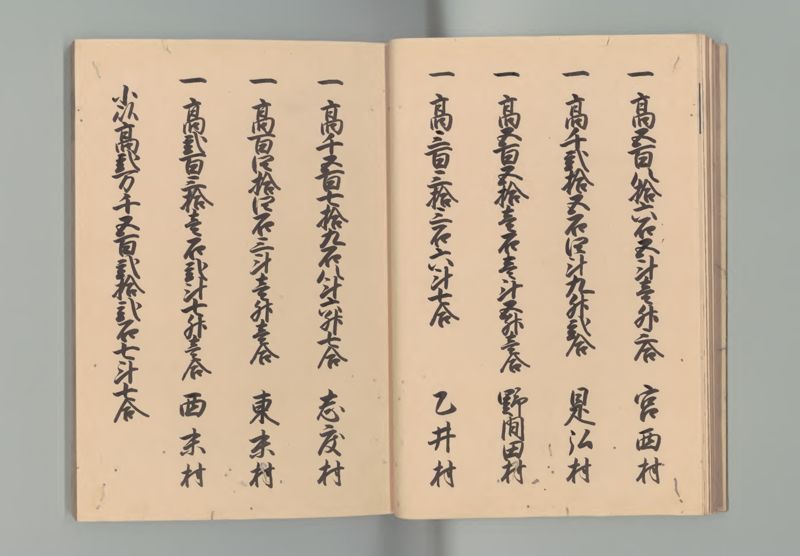 一 高五百八拾六石五斗壱升二合 宮西村
一 高千弐拾五石四斗九升弐合 是弘村
一 高五百五拾壱石壱斗五升壱合 野間田村
一 高三百三拾三石六斗七合 乙井村
一 高千五百七拾九石八斗六升七合 志度村
一 高百四拾四石三斗壱升壱合 東末村
一 高弐百三拾壱石弐斗七升壱合 西末村
小以高壱万千五百弐拾弐石七斗七合